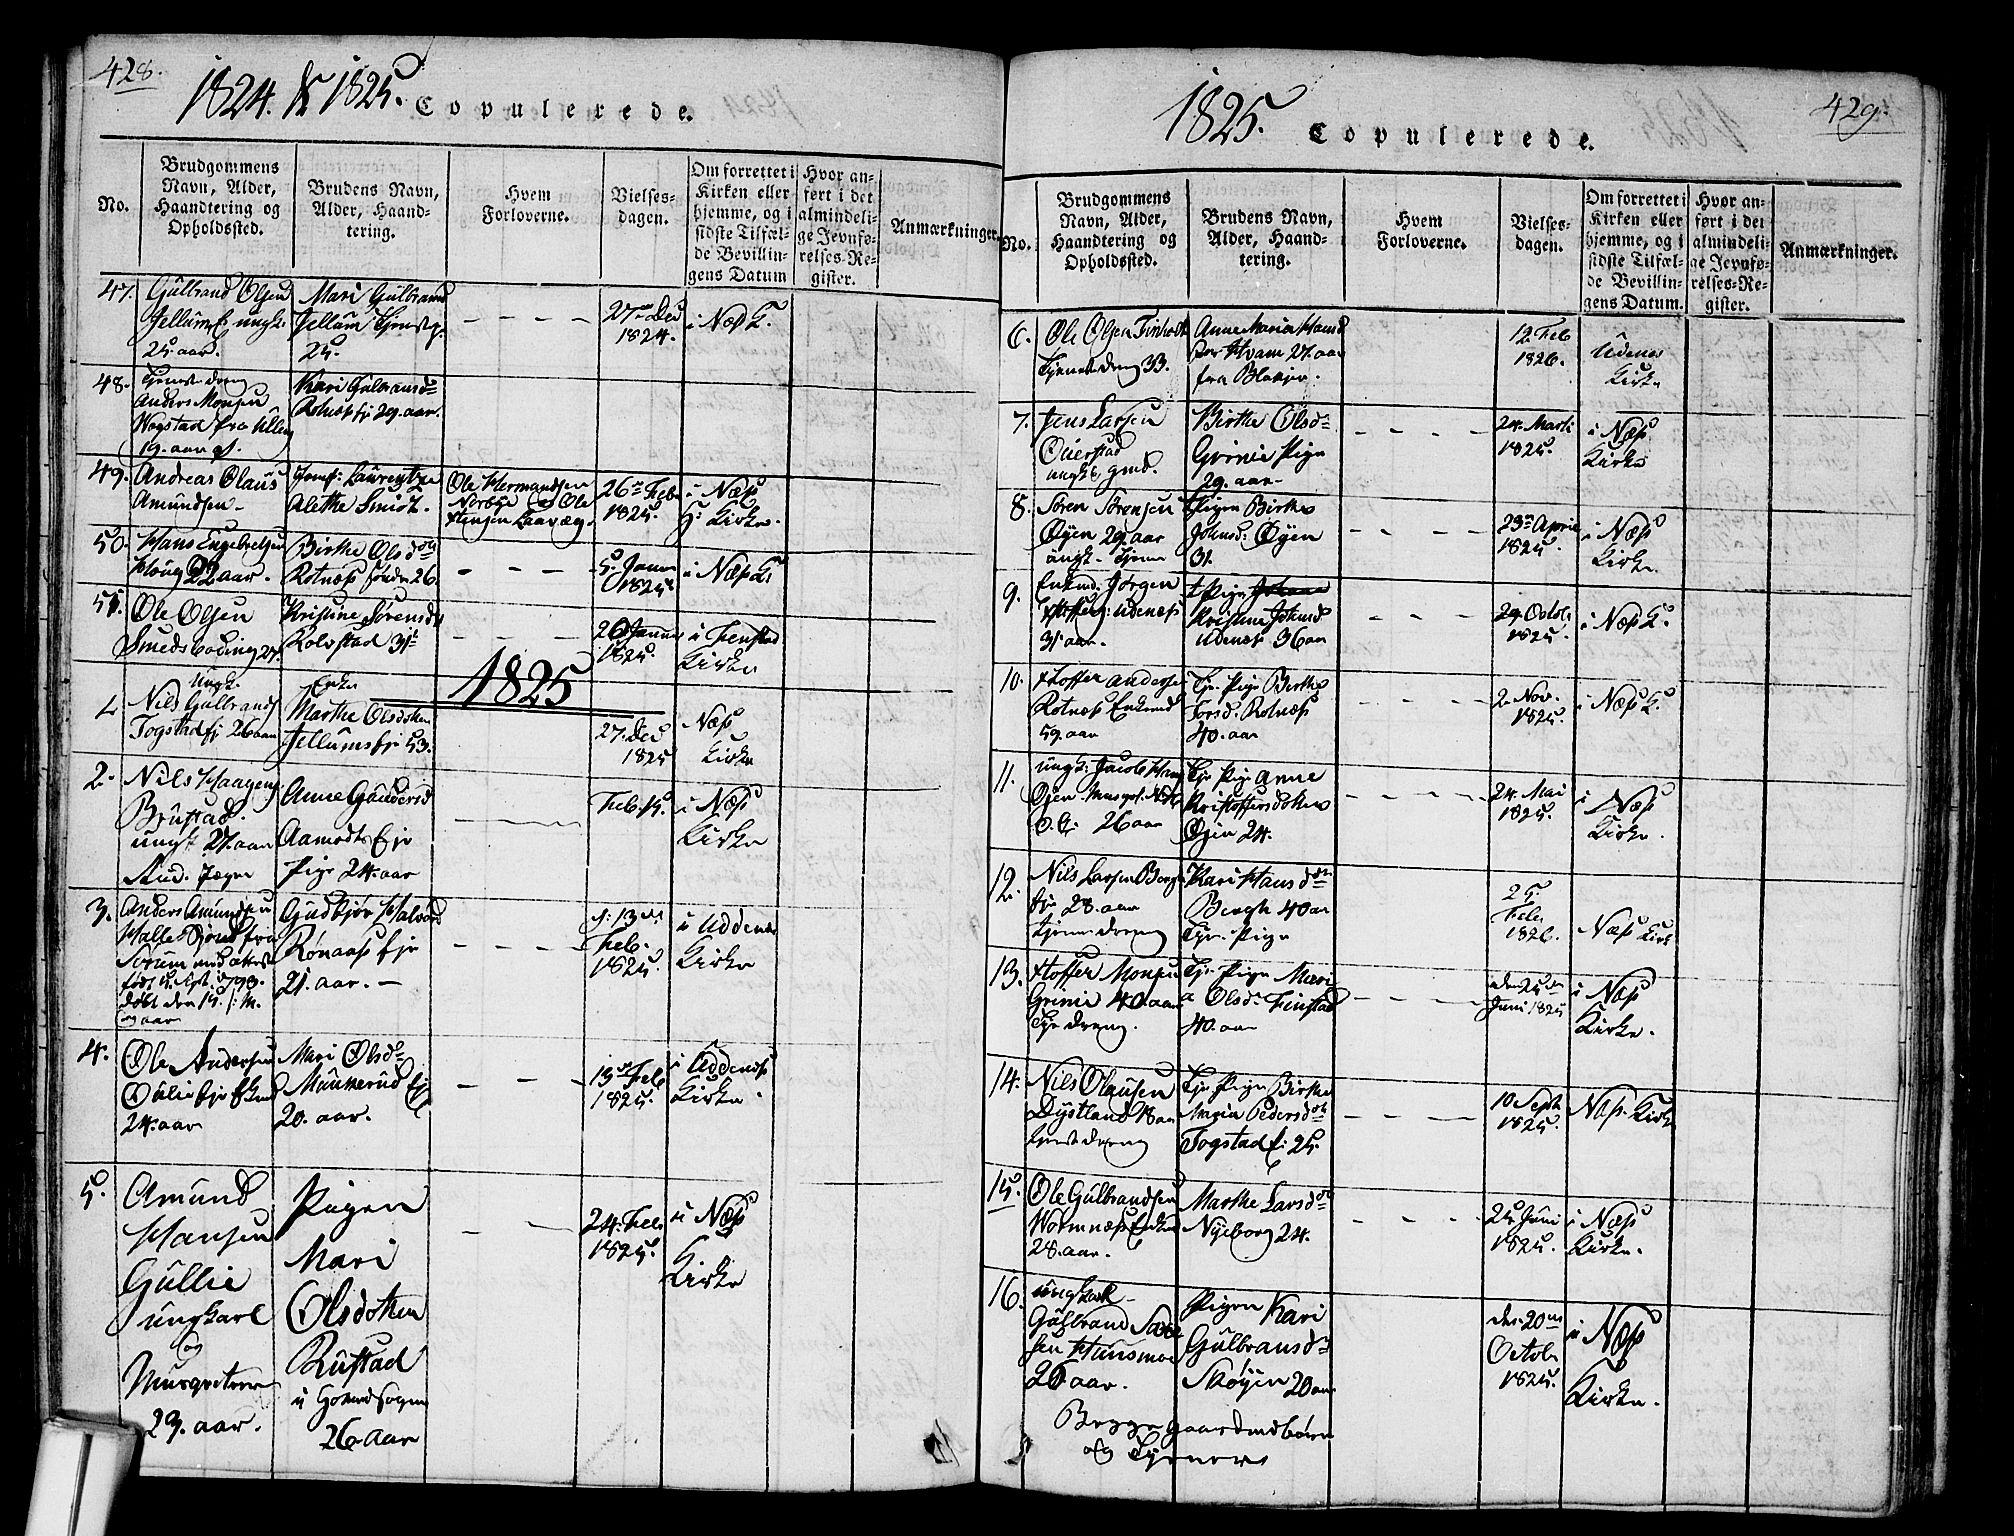 428.
1824. & 1825. Copulerede.
No.
Brudgommens
Navn, Alder,
Haandtering og
Opholdssted.
Brudens Navn,
Alder, Haand-
tering.
Hvem
Forloverne.
Vielses-
dagen.
Om forrettet i
Kirken eller
hjemme, og i
sidste Tilfæl-
de Bevillin-
gens Datum
Hvor an-
ført i det
almindeli-
ge Jevnfø-
relses-Re-
gister.
Anmærkninger.
47.
Gulbrand Olsen
Jellum E. ungk.
25. aar.
Mari Gulbrands
Jellum
25.
27 Dec
1824.
i Næs K.
48.
Tjeneste dreng
Anders Monsen
Wogstad fra Ullens
19. aar
Kari Gulbransd
Rotnæs Ej 29. aar.
49.
Andreas Olaus
Amundsen
Jomf: Laurentze
Alethe Smidt.
Ole Hermandsen
Norbye og Ole
Stensen Laavæg
26 Feb
1825.
i Næs
H: Kirke.
50.
Hans Engebretsen
Houg 22 aar.
Birthe Olsd
Rotnæs Søndr 26.
5. Janu
1825.
i Næs K.
51.
Ole Olsen
Smeds 27.
Kristine Sørensd
Rolvstad 31
20 Januar
1825.
i Fenstad
Kirke
1825
1.
Ungk.
Nils Gulbrands
Togstad Ej 26 aar
Enke
Marthe Olsdotter
Jellums Ej 53.
27. Dec
1825
Næs
Kirke
2.
Nils Haagens
Brustad.
ungk 27. aar
And. Jæger
Anne Gundersd
Aamodts Eje
Pige 24. aar
Feb. 15.
i Næs
Kirke
3.
Anders Amundsen
Halle fra
Sørum med attest
født 5. Apr. 1798.
døbt den 15. s: M.
Gudbjør Halvord
Rønaas Eje
21. aar. —
13
Feb.
1825.
i Uddenæs
Kirke
4.
Ole Andersen
Ovlie Eje Enkmd
24. aar
Mari Olsd
Munkerud Ej
20. aar.
13 Feb
1825.
i Uddenæs
Kirke.
5.
Amund
Hansen
Gullie
ungkarl
og
Musqveteer
29. aar.
Pigen
Mari
Olsdotter
Rustad
i Sogn
26. aar
24. Feb
1825.
i Næs
Kirke
1825. Copulerede.
429.
No.
Brudgommens
Navn, Alder,
Haandtering og
Opholdssted.
Brudens Navn,
Alder, Haand-
tering.
Hvem
Forloverne.
Vielses-
dagen.
Om forrettet i
Kirken eller
hjemme, og i
sidste Tilfæl-
de Bevillin-
gens Datum.
Hvor an-
ført i det
almindeli-
ge Jevnfø-
relses-Re-
gister.
Anmærkninger.
6.
Ole Olsen Finholt
Tjeneste dreng 33.
Anne Maria Hansd
Hvam 27. aar
fra Blakjer.
12 Feb
1826.
Udenes
Kirke
7.
Jens Larsen
Ouerstad
ungk. gmd.
Birthe Olsd
Grinie Pige
29. aar
24. Marti
1825.
i Næs
Kirke
8.
Søren Sørensen
Øyen 29. aar
ungk. Tjener
Pigen Birthe
Johnsd: Øyen
31.
23 April
1825.
i Næs
Kirke.
9.
Enkmd: Jørgen
Udenæs
31. aar.
Pige
Kristine Johnsd
Udenæs 36 aar
29. Octob:
1825.
i Næs K.
10.
Stoffer Anders
Rotnæs Enkmd
59. aar
Tje. Pige Birthe
Torsd. Rotnæs
40. aar
2. Nov.
1825.
i Næs K.
11.
ungk: Jacob Hans
Øjen Musqvt.
26 aar
Tje. Pige Anne
Kristoffersdotter
Øjen 24.
24. Mai
1825.
i Næs
Kirke.
12.
Nils Larsen Bergs
Eje 28. aar
tjeneste dreng
Kari Hansd
Bergh 40 aar
Tje. Pige
25
Feb
1826.
Næs Kirk
13.
Stoffer Monsen
Grinie 40 aar
Tje dreng.
Tje. Pige Mari
a Olsd Finstad
40. aar
den 25
Juni 1825
i Næs
Kirke.
14.
Nils Olausen
Dystland 18 aar
tjenst dreng
Tje Pige Birthe
Maria Pedersd
Togstad E: 25
10 Sept
1825.
Næs. Kirke
15.
Ole Gulbrandsen
Wormnæs Enkmd
28. aar.
Marthe Larsd
Nyeborg 24.
25 Juni
1825.
i Næs
Kirke.
16.
ungkarl
Gulbrand
sen Huusmoe
26 aar.
Pigen Kari
Gulbransd
Skøyen 20 aar
den 20
Octob
1825.
i Næs
Kirke.
Begge gaardmdbørn
og Tjenere